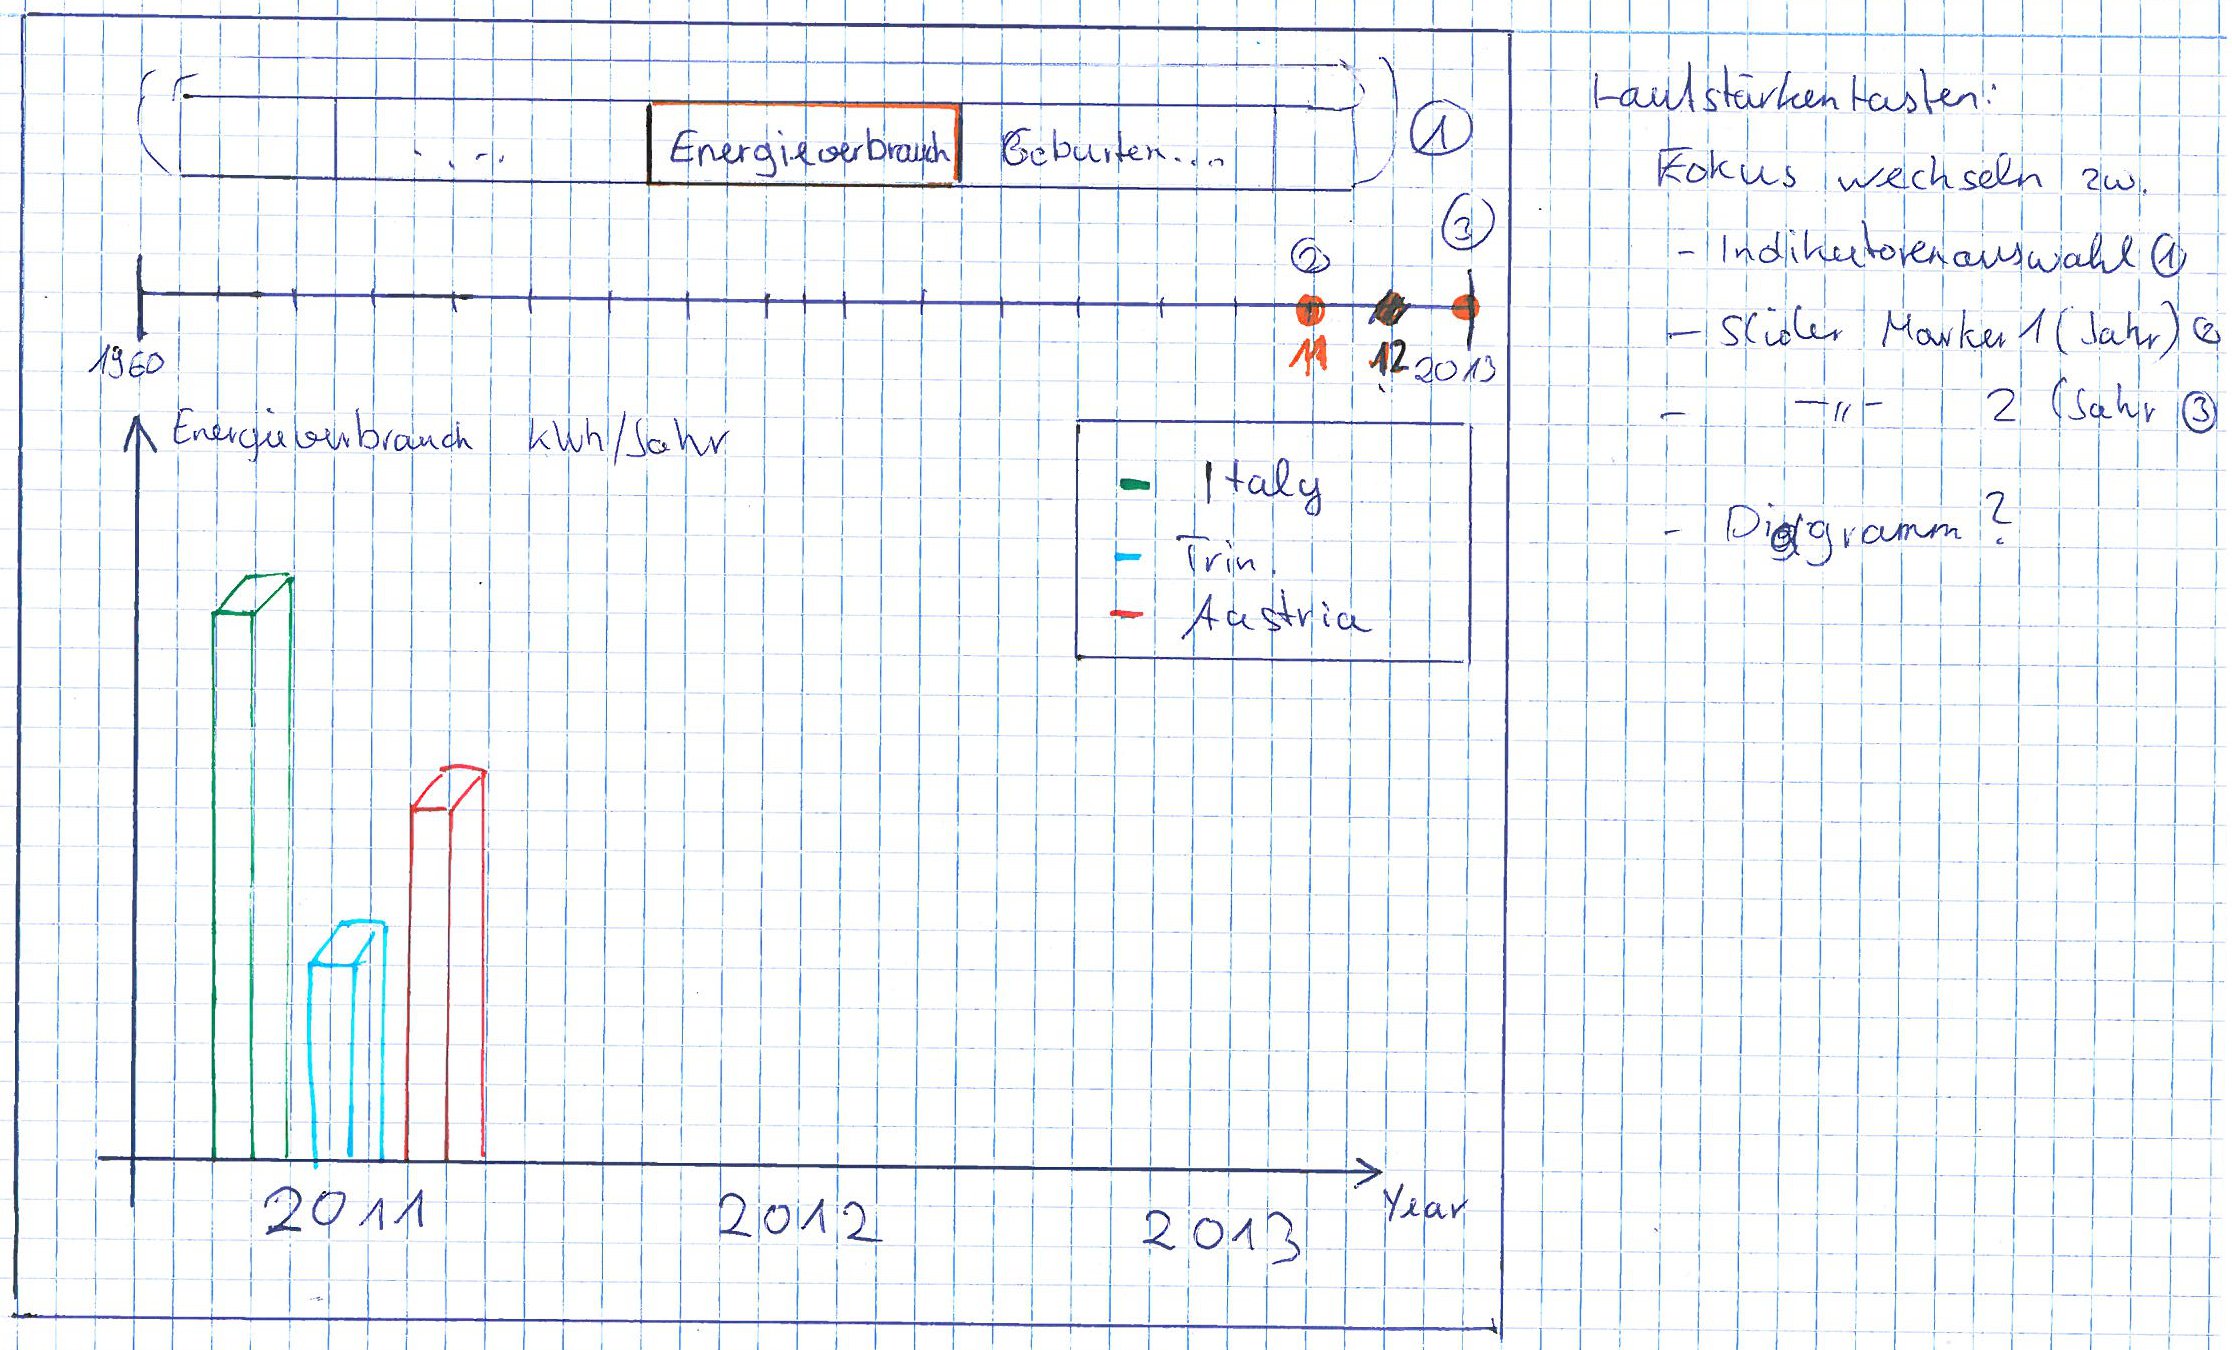 Energieverbrauch Geburten... ①
② ③
1960 11 12 2013
Energieverbrauch kWh/Jahr
Italy
Trin.
Austria
2011 2012 2013 Year
Lautstärkentasten:
Fokus wechseln zw.
- Indikatorenauswahl ①
- Slider Marker 1 (Jahr) ②
- —〃— 2 (Jahr ③
- Diagramm?